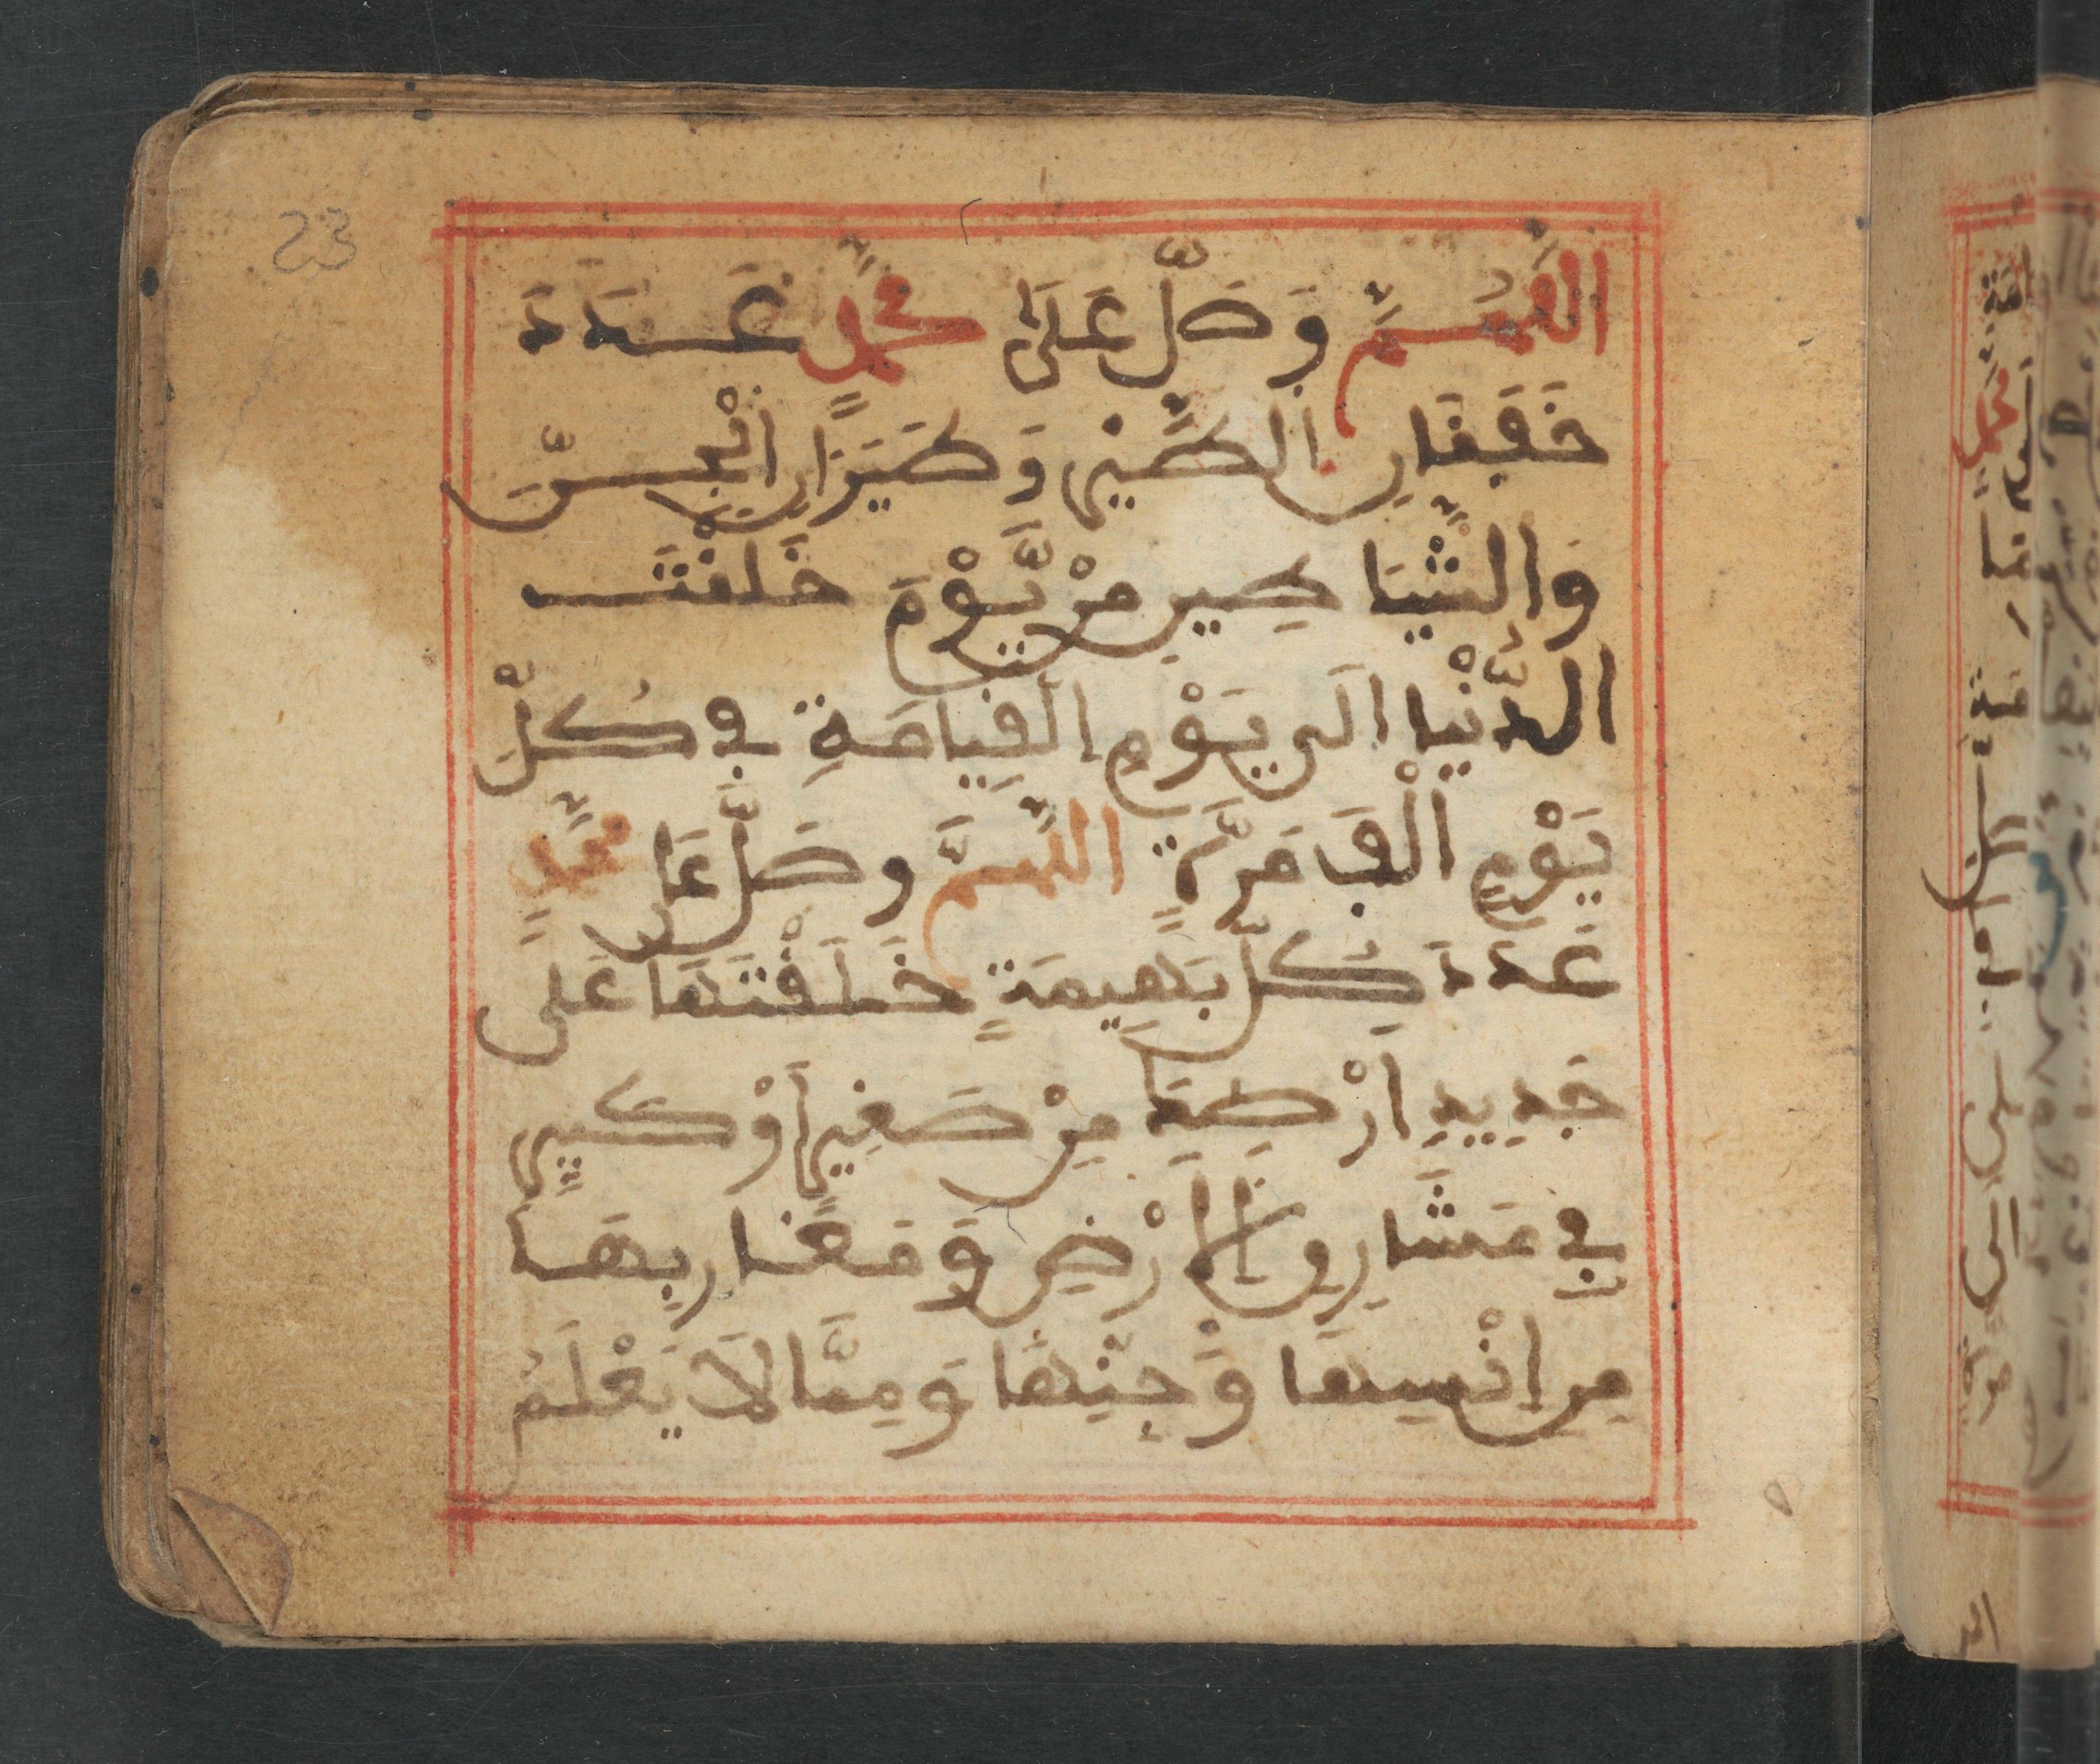 23
اللَّهُمَّ وَصَلِّ عَلَى مُحَمَّدٍ عَدَدَ
خَفَقَانِ الطَّيْرِ وَطَيَرَانِ الْجِنِّ
وَالشَّيَاطِينِ مِنْ يَّوْمَ خَلَقْتَ
الدُّنْيَا إِلَى يَوْمِ الْقِيَامَةِ فِي كُلِّ
يَوْمٍ أَلْفَ مَرَّةٍ اللَّهُمَّ وَصَلِّ عَلَى مُحَمَّدٍ
عَدَدَ كُلِّ بَهِيمَةٍ خَلَقْتَهَا عَلَى
جَدِيدِ أَرْضِكَ مِنْ صَغِيرٍ أَوْ كَبِيرٍ
فِي مَشَارِقِ الْأَرْضِ وَمَغَارِبِهَا
مِنْ إِنْسِهَا وَجِنِّهَا وَمِمَّا لَا يَعْلَمُ